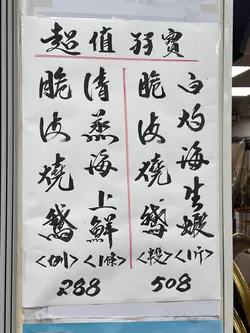 超值孖寶
白灼海生蝦<1斤>
脆皮燒鵝
508
清蒸海上鮮<1條>
脆皮燒鵝<例>
288